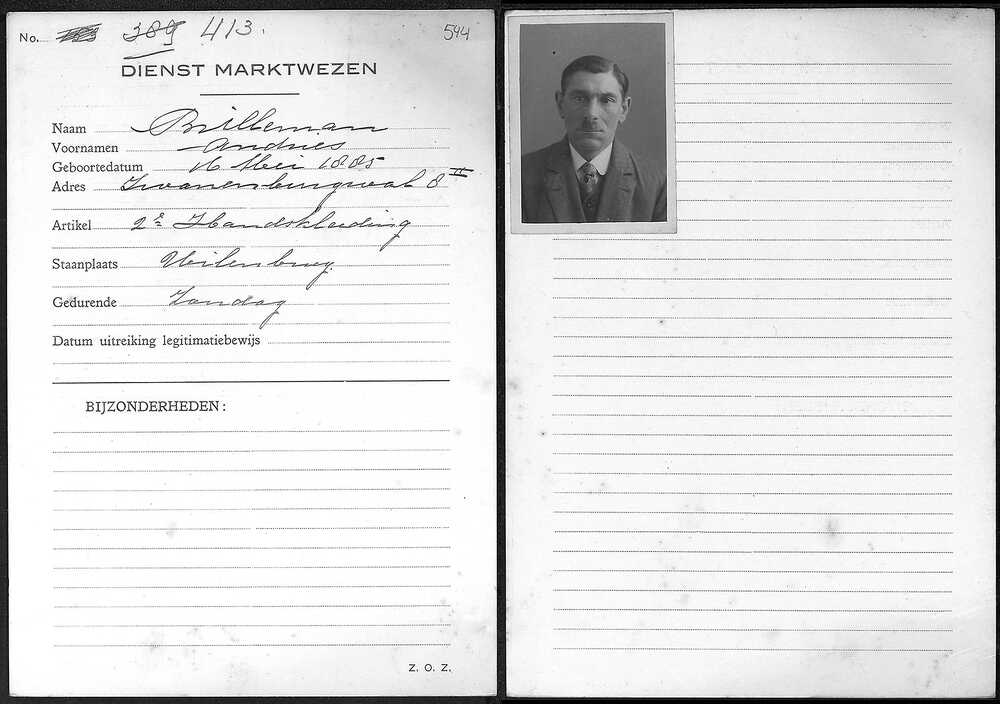 No. 389 413. 544
DIENST MARKTWEZEN
Naam Brilleman
Voornamen Andries
Geboortedatum 16 Mei 1885
Adres Zwanenburgwal 8 II
Artikel 2e Handskleeding
Staanplaats Uilenburg.
Gedurende Zondag
Datum uitreiking legitimatiebewijs
BIJZONDERHEDEN:
Z. O. Z.